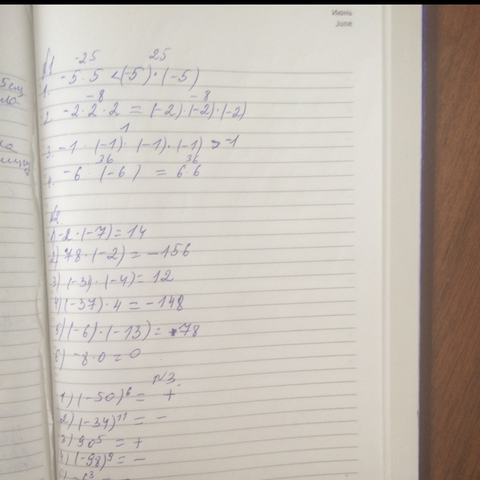 Июнь
June
№1
-25 25
1. -5·5 < (-5)·(-5)
-8 -8
2. -2·2·2 = (-2)·(-2)·(-2)
1
3. -1·(-1)·(-1)·(-1) > -1
36 36
4. -6·(-6) = 6·6
№2
1) -2·(-7) = 14
2) 78·(-2) = -156
3) (-3)·(-4) = 12
4) (-37)·4 = -148
5) (-6)·(-13) = 78
6) -8·0 = 0
№3.
1) (-50)⁶ = +
2) (-34)¹¹ = -
3) 90⁵ = +
4) (-98)⁹ = -